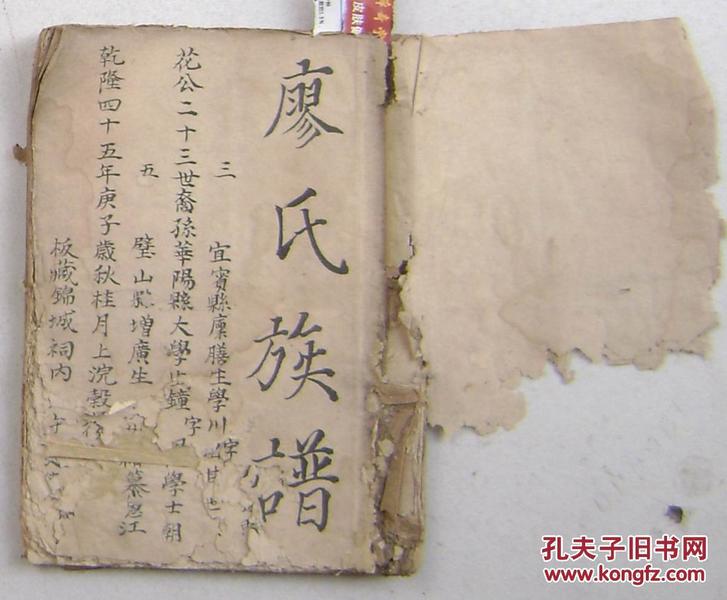 廖氏族譜
三 宜賓縣廩膳生學川字
花公二十三世裔孫華陽縣大學生鐘字 學士朝
五 璧山縣增廣生
乾隆四十五年庚子歲秋桂月上浣穀 慕 江
板藏錦城祠内
皮肤
孔夫子旧书网
www.kongfz.com